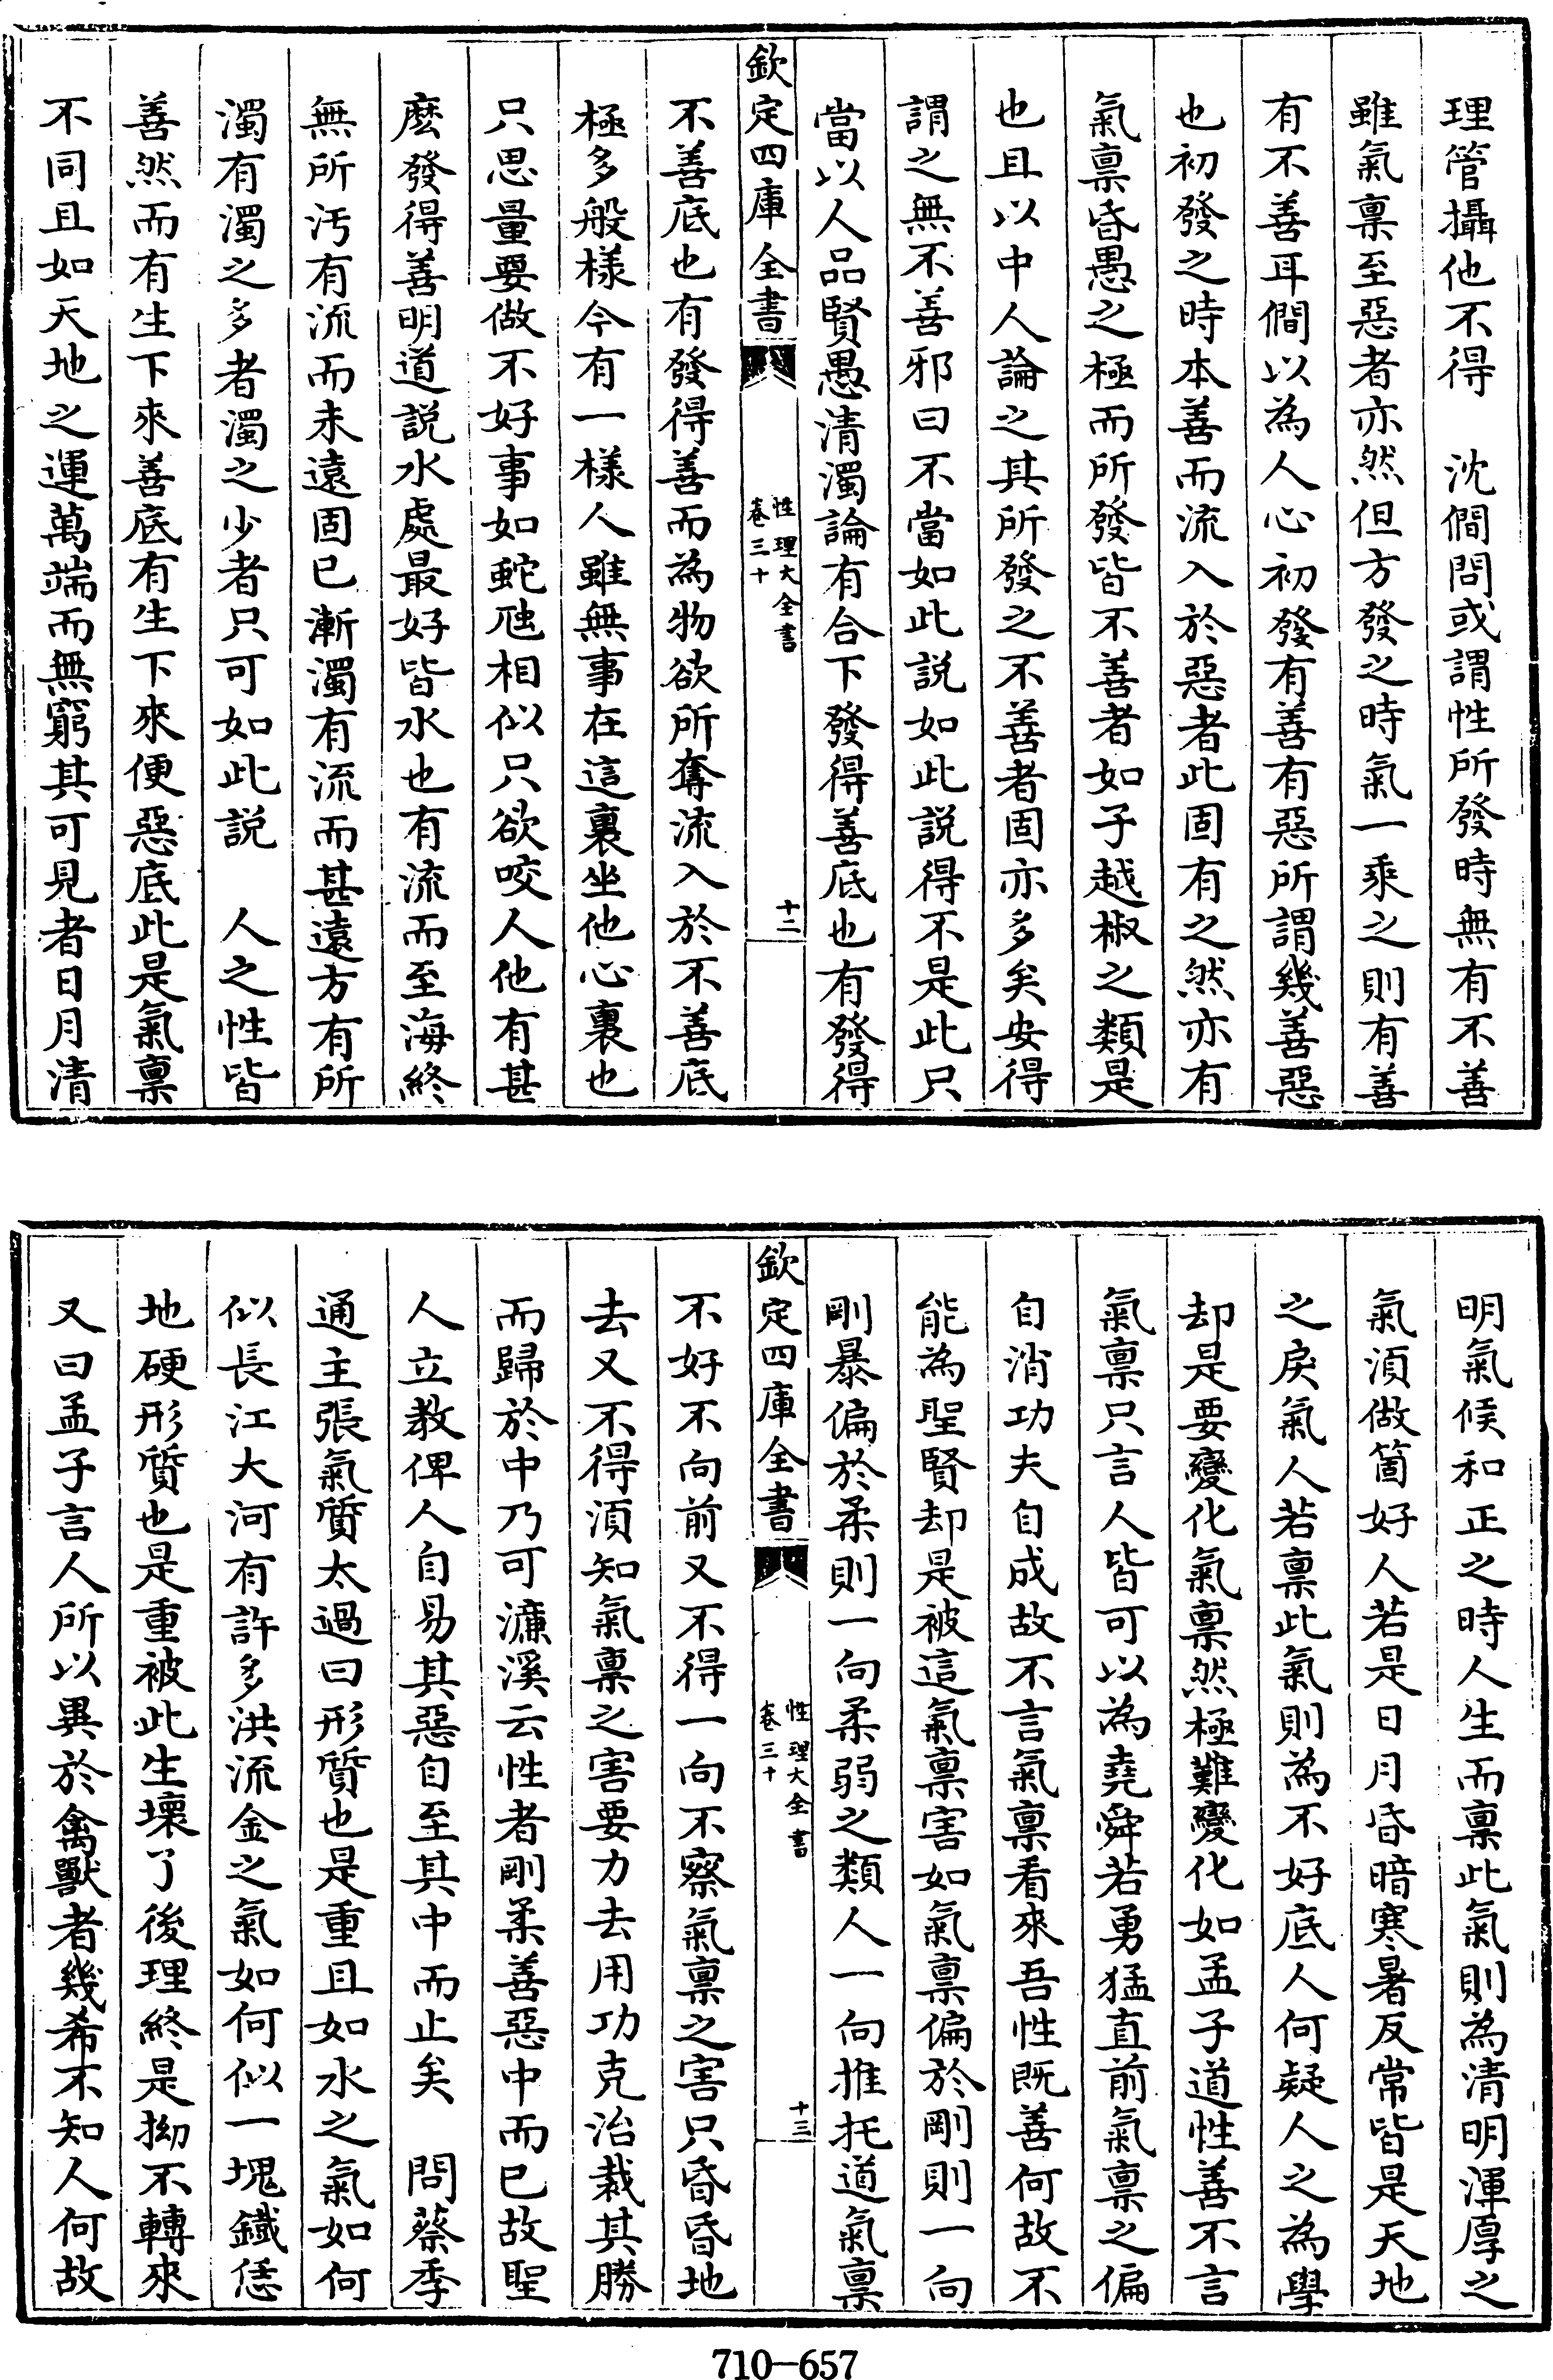 理管攝他不得　沈僩問或謂性所發時無有不善
雖氣稟至惡者亦然但方發之時氣一乘之則有善
有不善耳僩以為人心初發有善有惡所謂幾善惡
也初發之時本善而流入於惡者此固有之然亦有
氣稟昏愚之極而所發皆不善者如子越椒之類是
也且以中人論之其所發之不善者固亦多矣安得
謂之無不善邪曰不當如此説如此説得不是此只
當以人品賢愚清濁論有合下發得善底也有發得
欽定四庫全書
性理大全書
卷三十
十二
不善底也有發得善而為物欲所奪流入於不善底
極多般樣今有一樣人雖無事在這裏坐他心裏也
只思量要做不好事如蛇虺相似只欲咬人他有甚
麽發得善明道説水處最好皆水也有流而至海終
無所汚有流而未遠固已漸濁有流而甚遠方有所
濁有濁之多者濁之少者只可如此説　人之性皆
善然而有生下來善底有生下來便惡底此是氣稟
不同且如天地之運萬端而無窮其可見者日月清
明氣候和正之時人生而稟此氣則為清明渾厚之
氣須做箇好人若是日月昏暗寒暑反常皆是天地
之戾氣人若稟此氣則為不好底人何疑人之為學
却是要變化氣稟然極難變化如孟子道性善不言
氣稟只言人皆可以為堯舜若勇猛直前氣稟之偏
自消功夫自成故不言氣稟看來吾性既善何故不
能為聖賢却是被這氣稟害如氣稟偏於剛則一向
剛暴偏於柔則一向柔弱之類人一向推托道氣稟
欽定四庫全書
性理大全書
卷三十
十三
不好不向前又不得一向不察氣稟之害只昏昏地
去又不得須知氣稟之害要力去用功克治裁其勝
而歸於中乃可濂溪云性者剛柔善惡中而已故聖
人立教俾人自易其惡自至其中而止矣　問蔡季
通主張氣質太過曰形質也是重且如水之氣如何
似長江大河有許多洪流金之氣如何似一塊鐵恁
地硬形質也是重被此生壞了後理終是拗不轉來
又曰孟子言人所以異於禽獸者幾希不知人何故
710—657